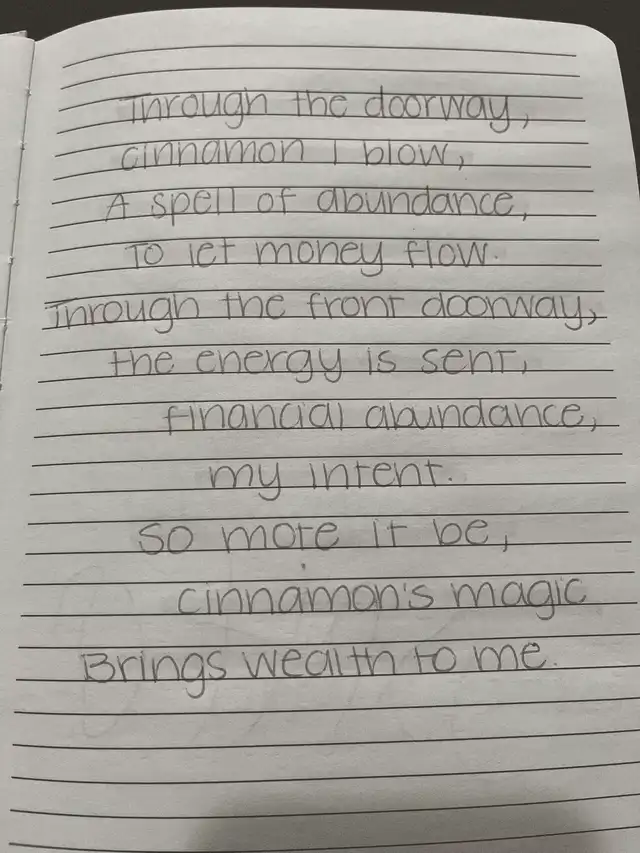 Through the doorway,
cinnamon I blow,
A spell of abundance,
To let money flow.
Through the front doorway,
the energy is sent,
financial abundance,
my intent.
So mote it be,
cinnamon's magic
Brings wealth to me.